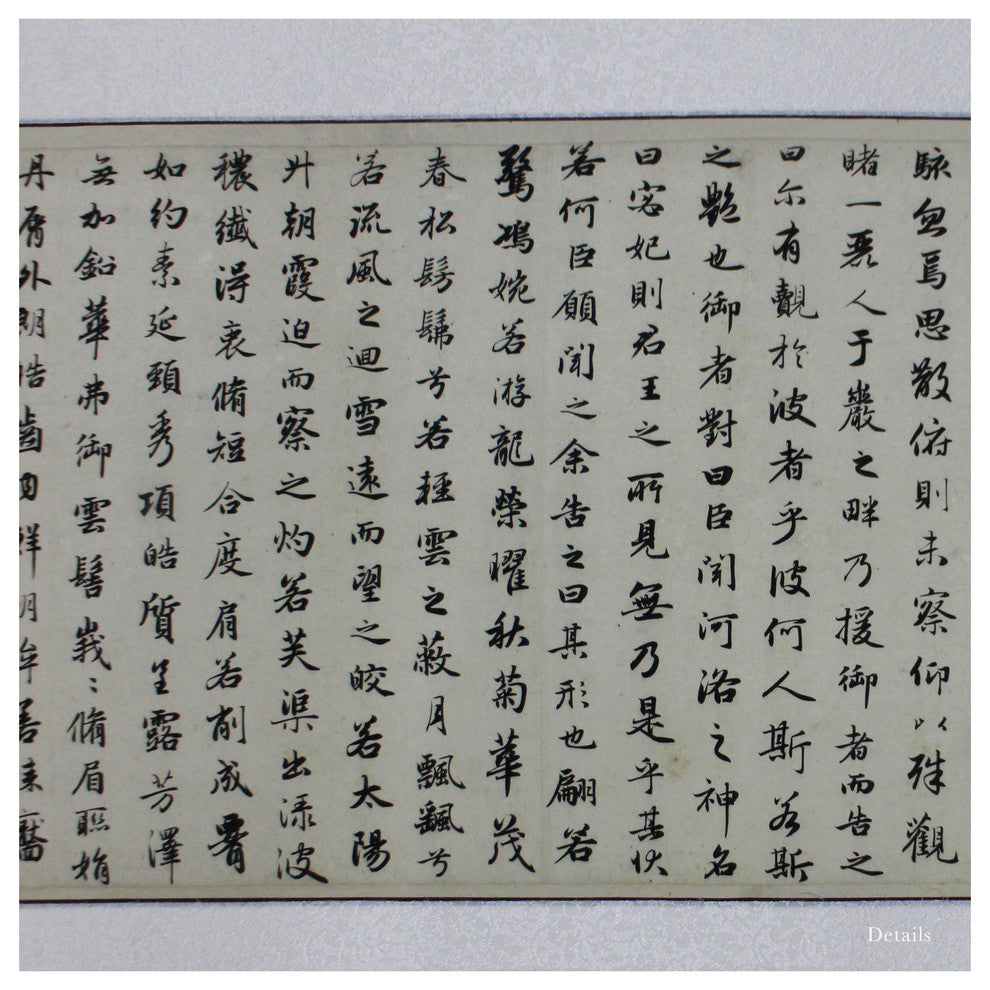 駭忽焉思散俯則未察仰以殊觀
睹一麗人于巖之畔乃援御者而告之
曰尒有覿於波者乎彼何人斯若斯
之艷也御者對曰臣聞河洛之神名
曰宓妃則君王之所見無乃是乎其狀
若何臣願聞之余告之曰其形也翩若
驚鴻婉若游龍榮曜秋菊華茂
春松髣髴兮若輕雲之蔽月飄颻兮
若流風之迴雪遠而望之皎若太陽
升朝霞迫而察之灼若芙渠出淥波
穠纖得衷脩短合度肩若削成署
如約素延頸秀項皓質呈露芳澤
無加鉛華弗御雲髻峩〻脩眉聯娟
丹脣外朗皓齒內鮮明眸善睞靨
Details